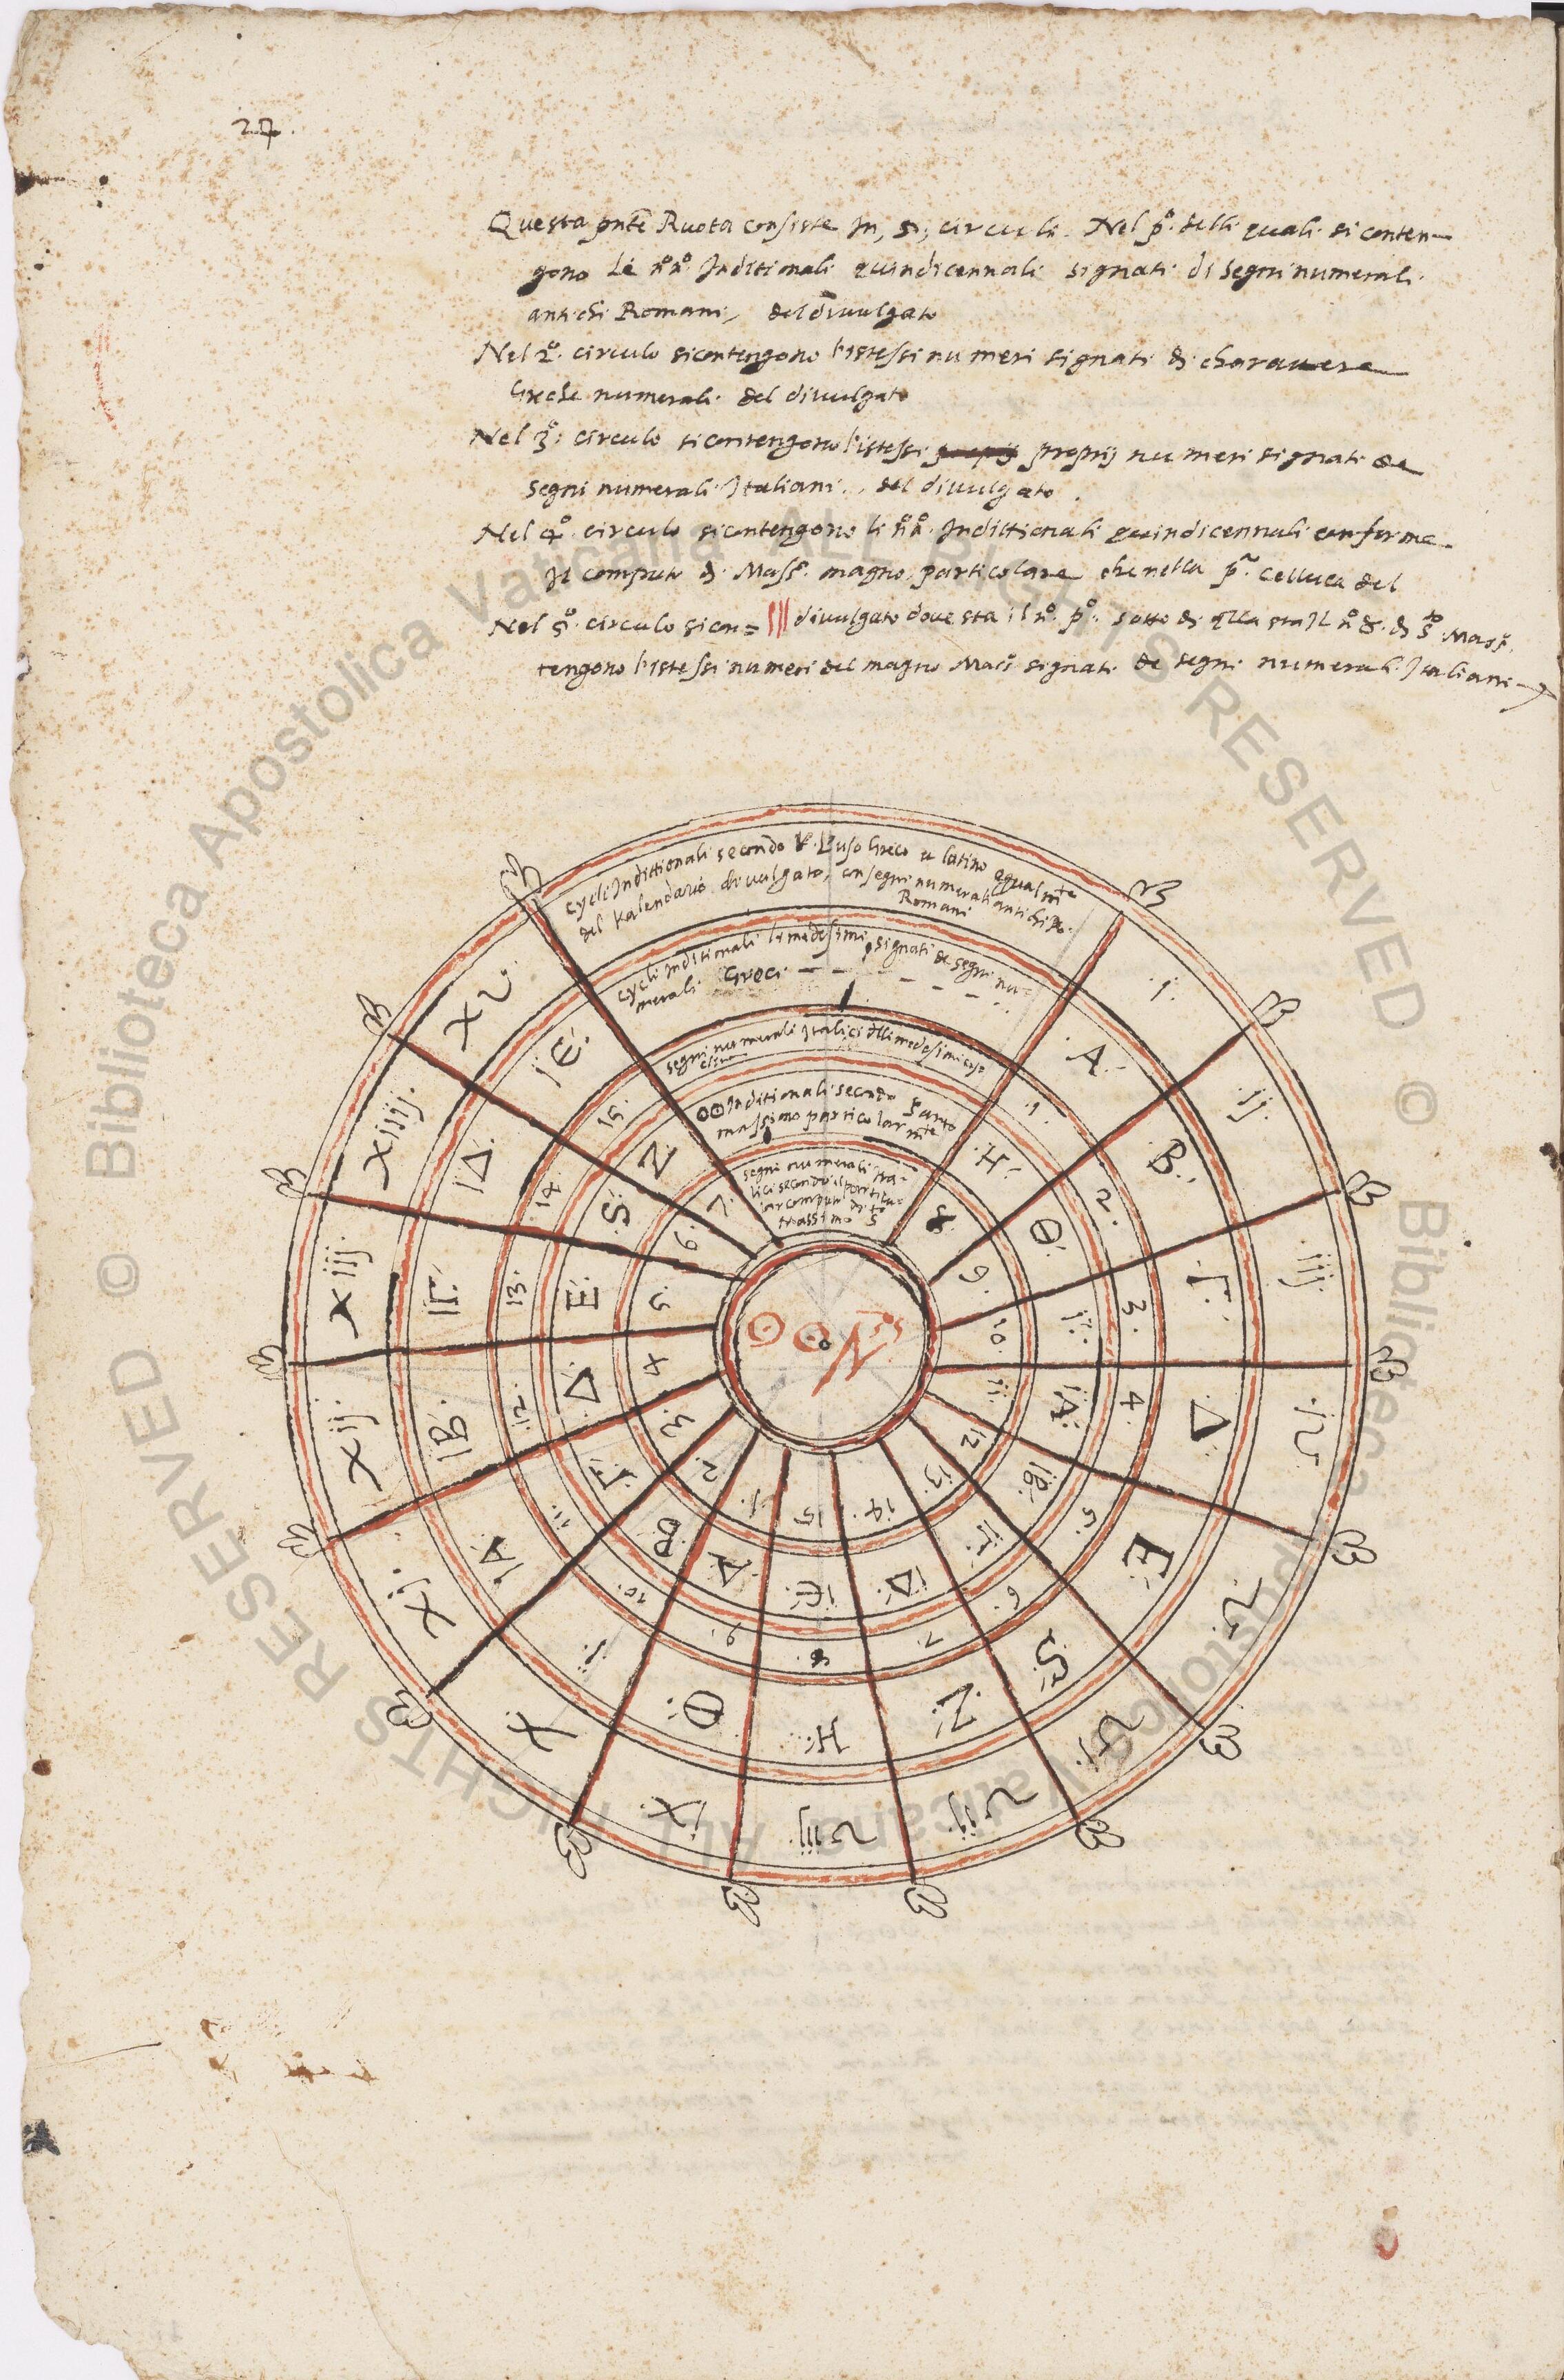 27.
Questa pnte Ruota consiste In, 5, circuli. Nel p.º delli quali si conten-
gono Le nº nº Inditionali quindicennali signati di segni numerali
antichi Romani, del divulgato
Nel 2º. circulo si contengono l'istessi numeri signati di charattere
Greche numerali. del divulgato
Nel 3º. circulo si contengono l'istessi proprij numeri signati de
segni numerali Italiani., del divulgato.
Nel 4º. circulo si contengono li nº nº. Indittionali quindicennali conforme
Il computo di Massº. magno particolare che nella pª. celluca del
divulgato dove sta il nº. pº. sotto di qlla sta Il nº 8. di Sto Massº.
Nel 5º. circulo si con=
tengono l'istessi numeri del magno Mass signati de segni numerali Italiani
cycli Indittionali secondo L'uso Greco et latino equalmte
del Kalendario divulgato, con segni numerali antichi Ro.
Romani
cycli Inditionali li medesimi signati de segni nu-
merali Greci
segni numerali Italici delli medesimi cy-
cli
Inditionali secondo Santo
massimo particolarmte
segni numerali Ita-
lici secondo il particu-
lar computo di sto
massimo S
j. ij. iij. iv. v. vj. vij. viij. ix. X Xj. Xij. Xiij. Xiiij. Xv.
A. B. Γ. Δ E. S. Z. H. Θ. i. iA. iB. iΓ. iΔ. iE.
1. 2. 3. 4. 5. 6. 7. 8. 9. 10. 11. 12. 13. 14. 15.
H. Θ. i. iA. iB. iΓ. iΔ. iE. A. B. Γ. Δ. E. S. Z.
8 9. 10. 11. 12 13. 14. 15 1. 2. 3. 4 5. 6. 7.
© Biblioteca Apostolica Vaticana ALL RIGHTS RESERVED © Biblioteca Apostolica Vaticana ALL RIGHTS RESERVED